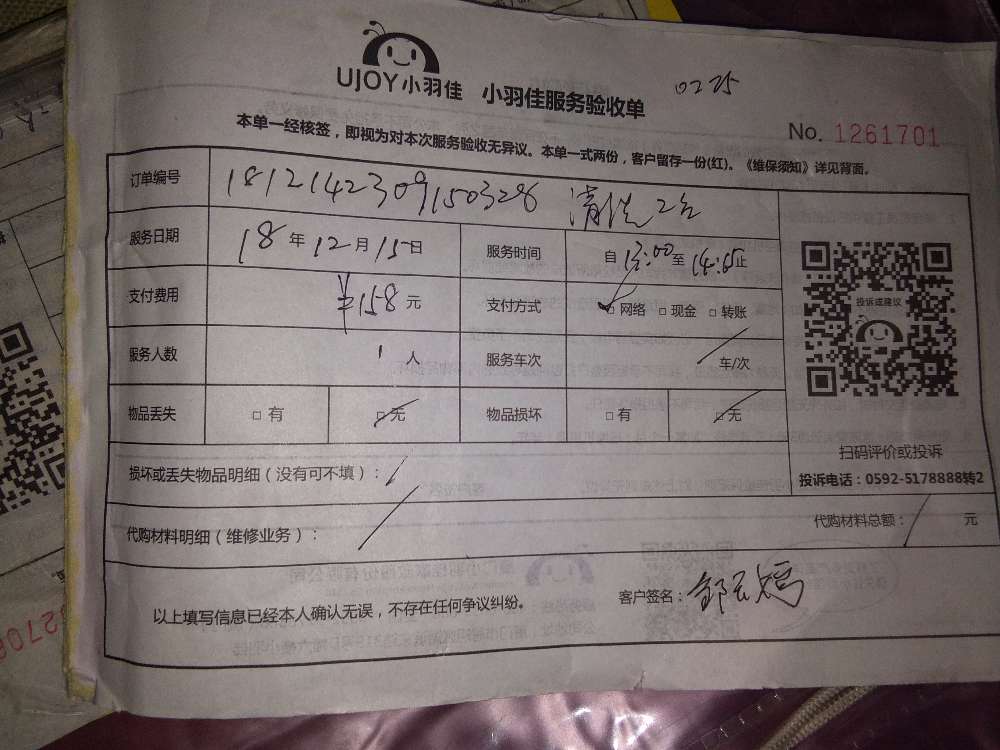 UJOY小羽佳 小羽佳服务验收单
0225
No. 1261701
本单一经核签，即视为对本次服务验收无异议。本单一式两份，客户留存一份(红)。《维保须知》详见背面。
订单编号 1812142309150328 清洗2台
服务日期 18年12月15日 服务时间 自13:00至14:05止
支付费用 ¥158元 支付方式 ☑网络 □现金 □转账
服务人数 1人 服务车次 / 车/次
物品丢失 □有 ☑无 物品损坏 □有 ☑无
投诉或建议
扫码评价或投诉
投诉电话：0592-5178888转2
损坏或丢失物品明细（没有可不填）： /
代购材料明细（维修业务）： / 代购材料总额： / 元
以上填写信息已经本人确认无误，不存在任何争议纠纷。 客户签名：